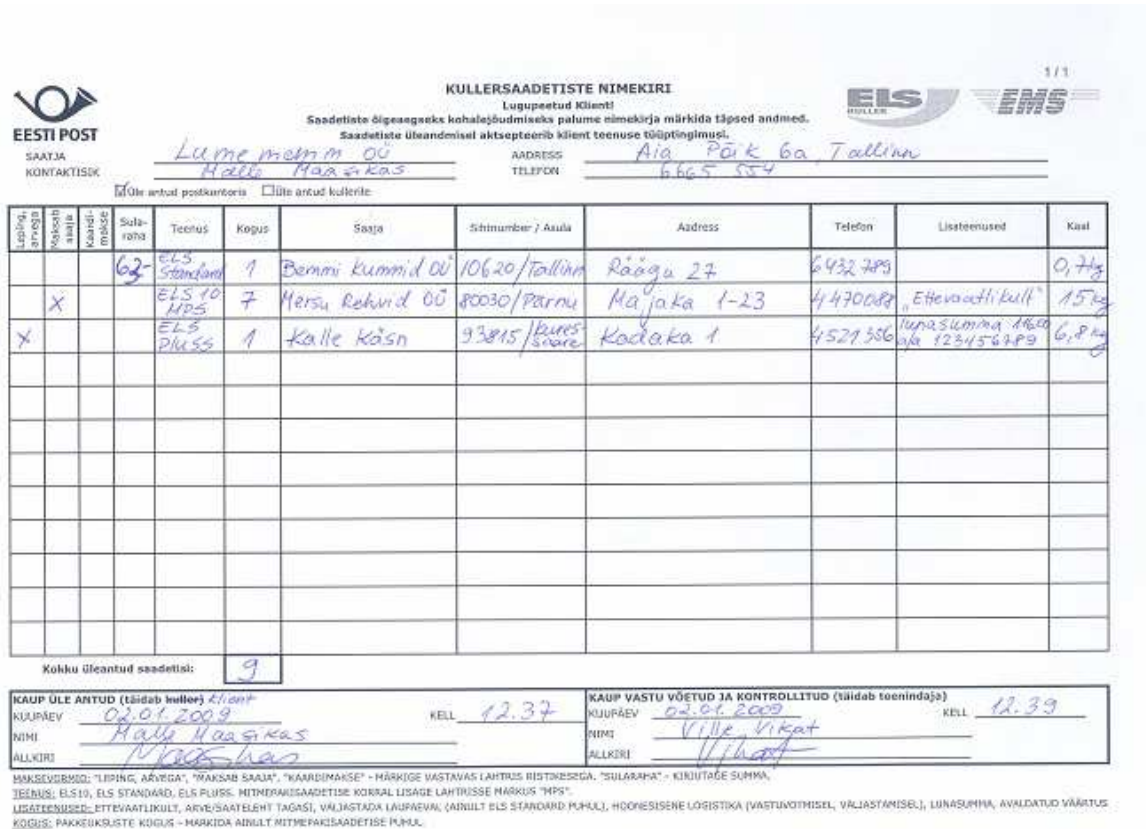 1/1
EESTI POST
KULLERSAADETISTE NIMEKIRI
Lugupeetud Klient!
Saadetiste õigeaegseks kohalejõudmiseks palume nimekirja märkida täpsed andmed.
Saadetiste üleandmisel aktsepteerib klient teenuse tüüptingimusi.
ELS KULLER
EMS
SAATJA Lumememm OÜ AADRESS Aia Põik 6a, Tallinn
KONTAKTISIK Malle Maasikas TELEFON 6665 554
Üle antud postkontoris Üle antud kullerile
Leping, arvega Maksab saaja Kaardimakse Sularaha Teenus Kogus Saaja Sihtnumber / Asula Aadress Telefon Lisateenused Kaal
62- ELS Standard 1 Bemmi Kummid OÜ 10620/Tallinn Räägu 27 6432789 0,7kg
X ELS 10 MPS 7 Mersu Rehvid OÜ 80030/Pärnu Majaka 1-23 4470088 „Ettevaatlikult" 15 kg
X ELS Pluss 1 Kalle Käsn 93815/Kuressaare Kadaka 1 4521356 lunasumma a/a 123456789 6,8 kg
Kokku üleantud saadetisi: 9
KAUP ÜLE ANTUD (täidab kuller) klient
KUUPÄEV 02.01.2009 KELL 12.37
NIMI Malle Maasikas
ALLKIRI Maasikas
KAUP VASTU VÕETUD JA KONTROLLITUD (täidab teenindaja)
KUUPÄEV 02.01.2009 KELL 12.39
NIMI Ville Vikat
ALLKIRI Vikat
MAKSEVORMID: "LEPING, ARVEGA", "MAKSAB SAAJA", "KAARDIMAKSE" - MÄRKIGE VASTAVAS LAHTRIS RISTIKESEGA. "SULARAHA" - KIRJUTAGE SUMMA.
TEENUS: ELS10, ELS STANDARD, ELS PLUSS. MITMEPAKISAADETISE KORRAL LISAGE LAHTRISSE MÄRKUS "MPS".
LISATEENUSED: ETTEVAATLIKULT, ARVE/SAATELEHT TAGASI, VÄLJASTADA LAUPÄEVAL (AINULT ELS STANDARD PUHUL), HOONESISENE LOGISTIKA (VASTUVÕTMISEL, VÄLJASTAMISEL), LUNASUMMA, AVALDATUD VÄÄRTUS
KOGUS: PAKKEÜKSUSTE KOGUS - MÄRKIDA AINULT MITMEPAKISAADETISE PUHUL.